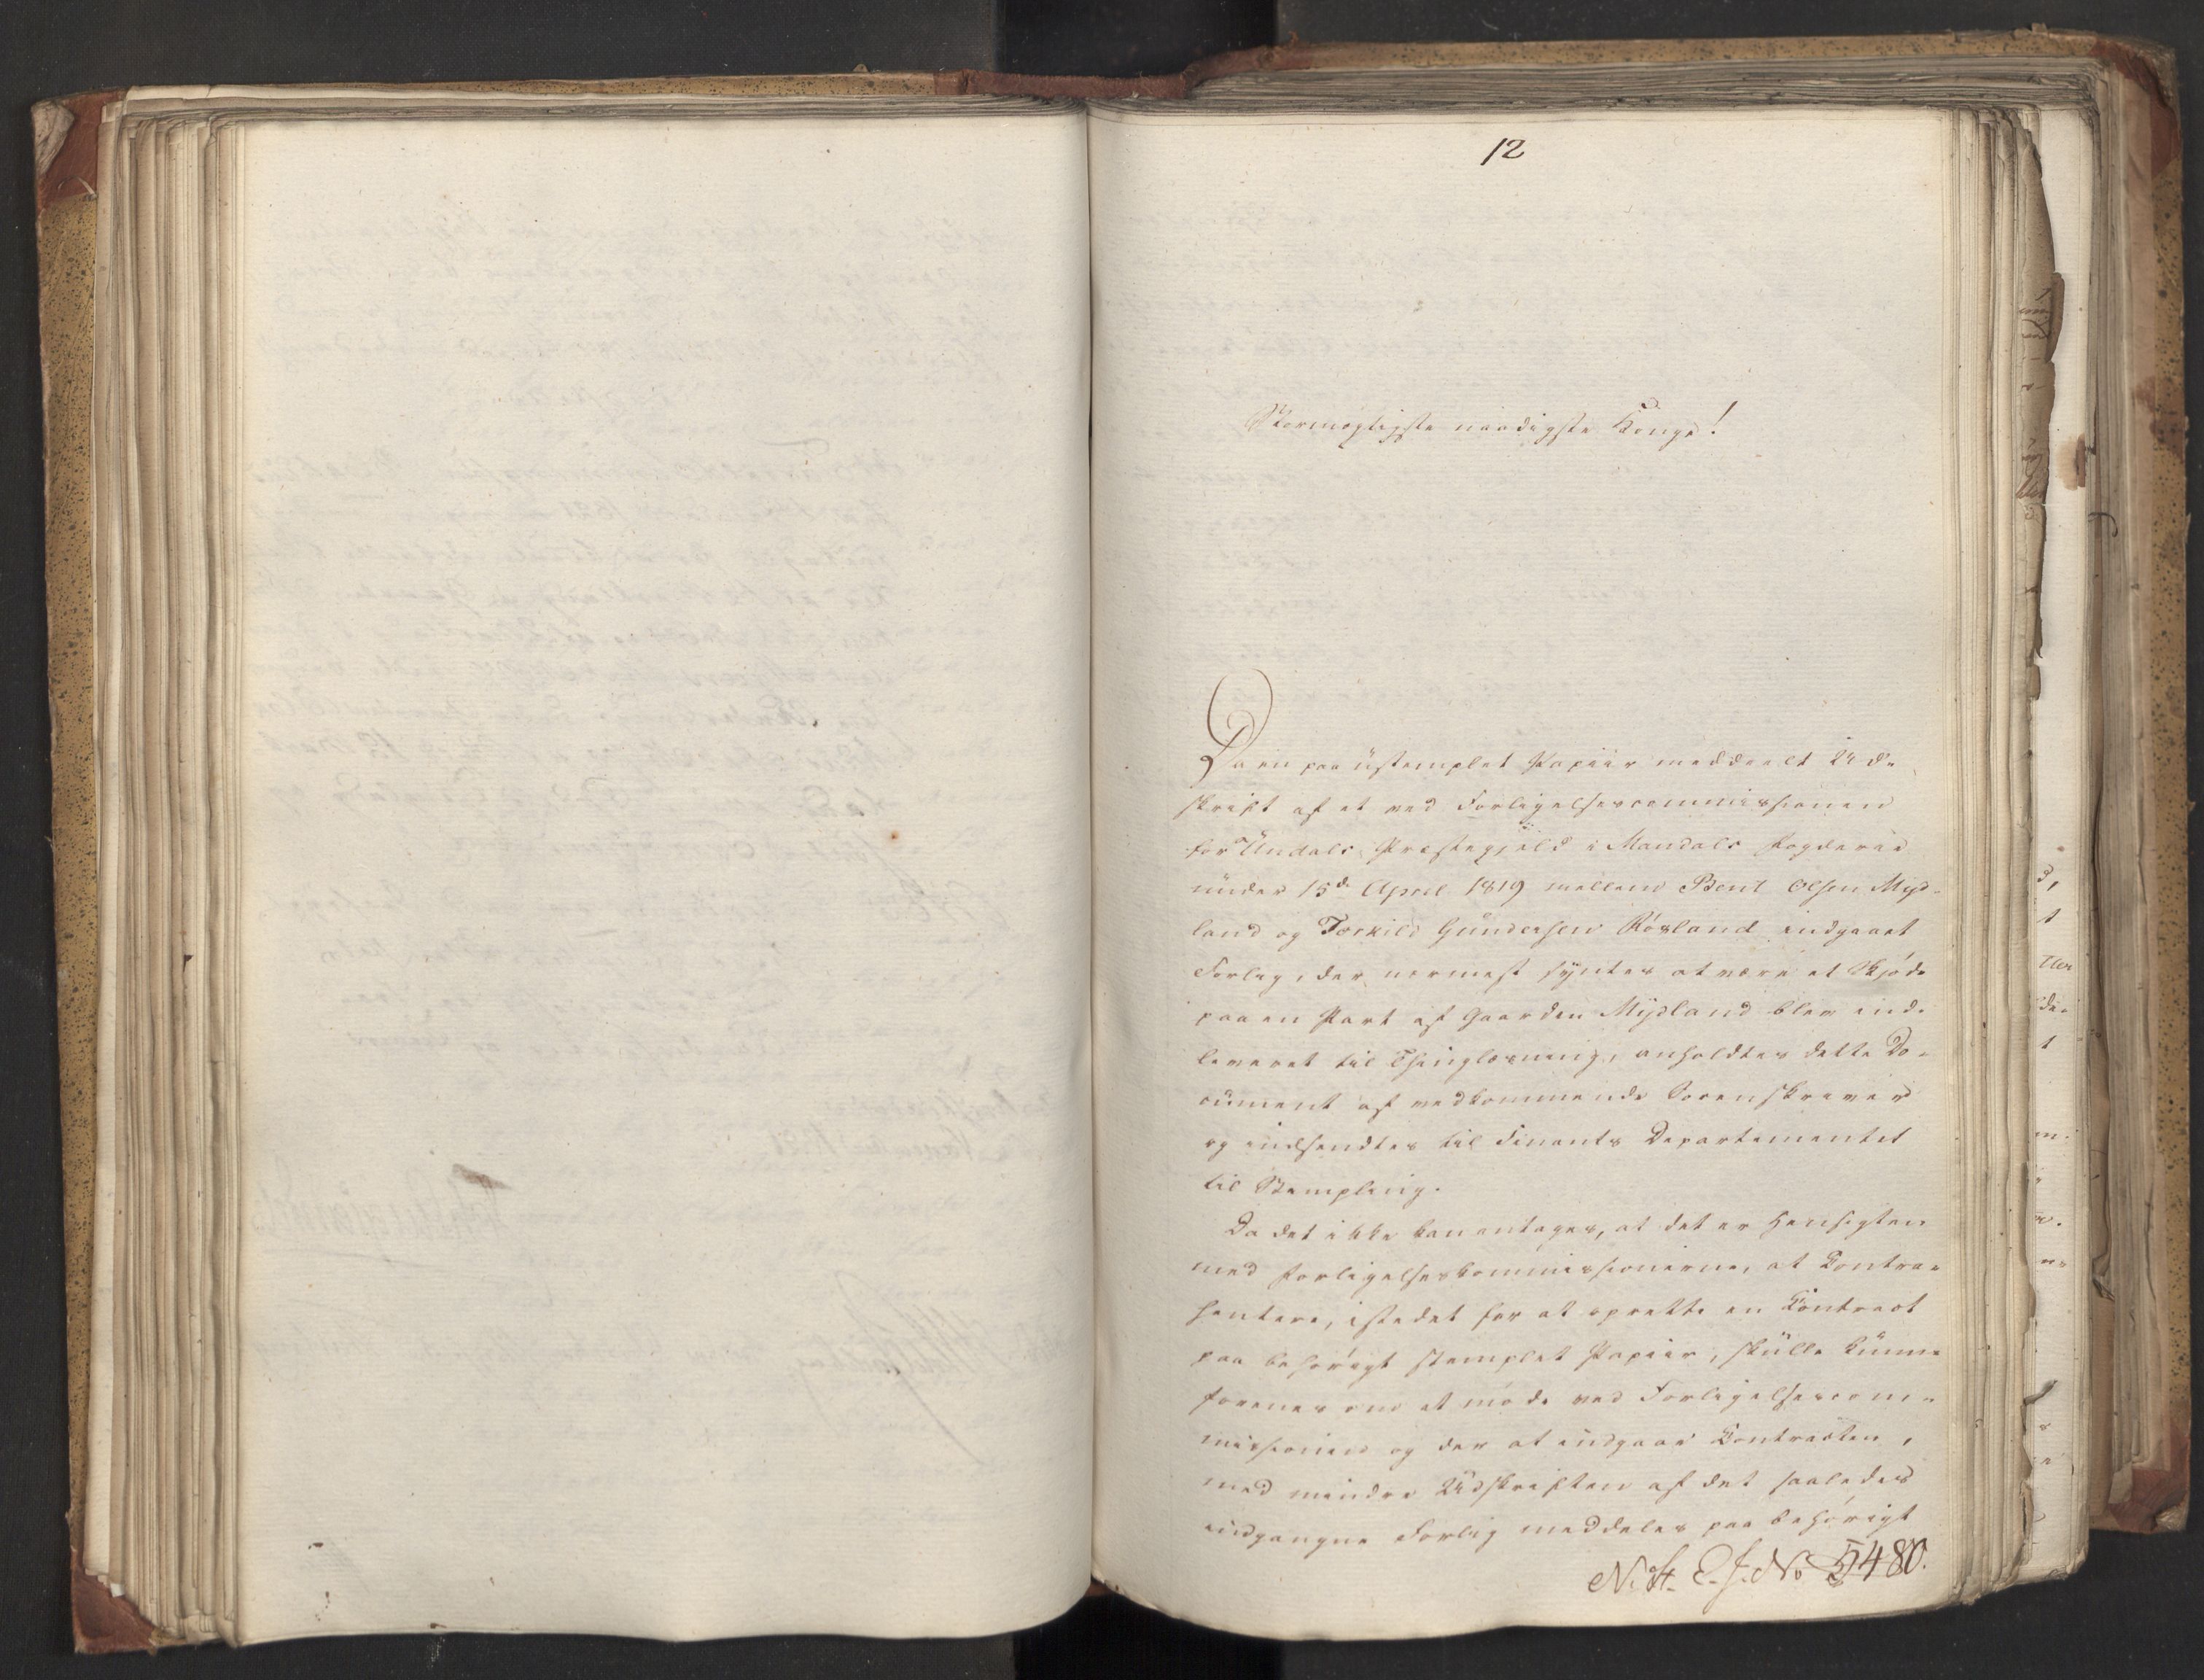 12
Stormægtigste naadigste Konge!
Da en paa ustemplet Papiir meddeelt Ud-
skrift af et ved Forligelsescommissionen
for Undals Præstegjeld i Mandals Fogderie
under 15de April 1819 mellem Bent Olsen Myd-
land og Torkild Gundersen Røsland indgaaet
Forlig, der nærmest syntes at være et Skjøde
paa en Part af Gaarden Mydland blev ind-
leveret til Thinglæsning, anholdtes dette Do-
cument af vedkommende Sorenskriver
og indsendtes til Finants Departementet
til Stempling.
Da det ikke kan antages, at det er Hensigten
med Forligelseskommissionerne, at Kontra-
henterne, istedet for at oprette en Kontract
paa behørigt stemplet Papiir, skulle kunne
forenes om at møde ved Forligelsescom-
missionen og der at indgaae Kontracten,
med mindre Udskriften af det saaledes
indgangne Forlig meddeles paa behørigt
N. St. E. J. No 5480.